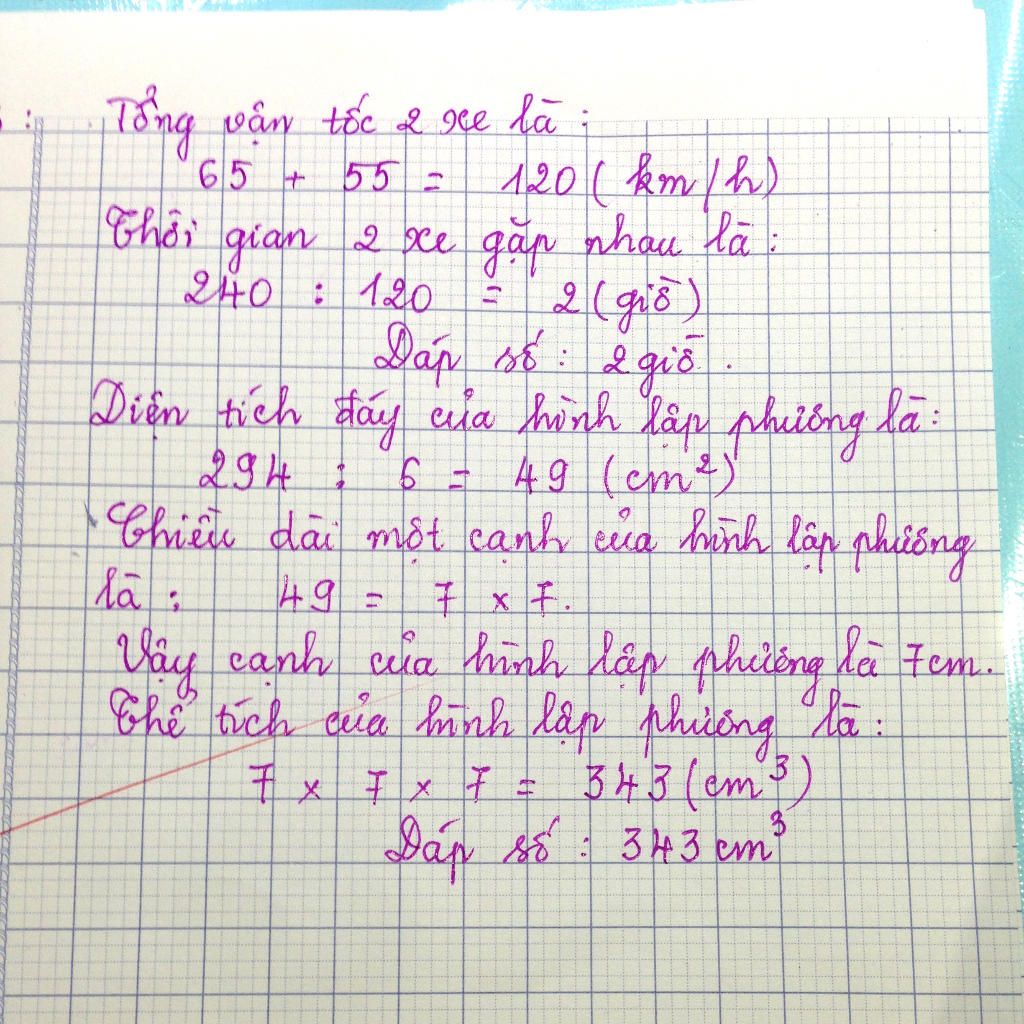 Tổng vận tốc 2 xe là :
65 + 55 = 120 ( km / h )
Thời gian 2 xe gặp nhau là :
240 : 120 = 2 ( giờ )
Đáp số : 2 giờ .
Diện tích đáy của hình lập phương là :
294 : 6 = 49 ( cm² )
Chiều dài một cạnh của hình lập phương
là : 49 = 7 x 7.
Vậy cạnh của hình lập phương là 7cm.
Thể tích của hình lập phương là :
7 x 7 x 7 = 343 ( cm³ )
Đáp số : 343 cm³